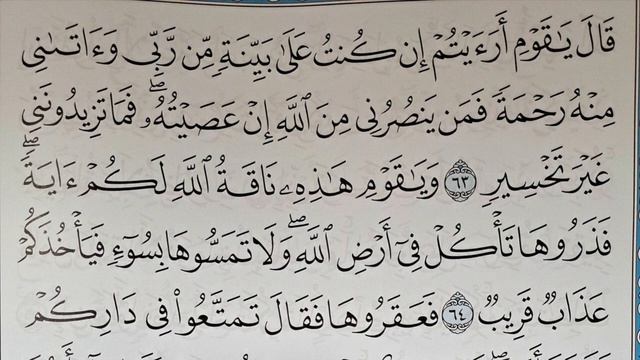 قَالَ يَٰقَوْمِ أَرَءَيْتُمْ إِن كُنتُ عَلَىٰ بَيِّنَةٍ مِّن رَّبِّى وَءَاتَىٰنِى
مِنْهُ رَحْمَةً فَمَن يَنصُرُنِى مِنَ ٱللَّهِ إِنْ عَصَيْتُهُۥۖ فَمَا تَزِيدُونَنِى
غَيْرَ تَخْسِيرٍ ٦٣ وَيَٰقَوْمِ هَٰذِهِۦ نَاقَةُ ٱللَّهِ لَكُمْ ءَايَةًۖ
فَذَرُوهَا تَأْكُلْ فِىٓ أَرْضِ ٱللَّهِۖ وَلَا تَمَسُّوهَا بِسُوٓءٍ فَيَأْخُذَكُمْ
عَذَابٌ قَرِيبٌ ٦٤ فَعَقَرُوهَا فَقَالَ تَمَتَّعُوا۟ فِى دَارِكُمْ